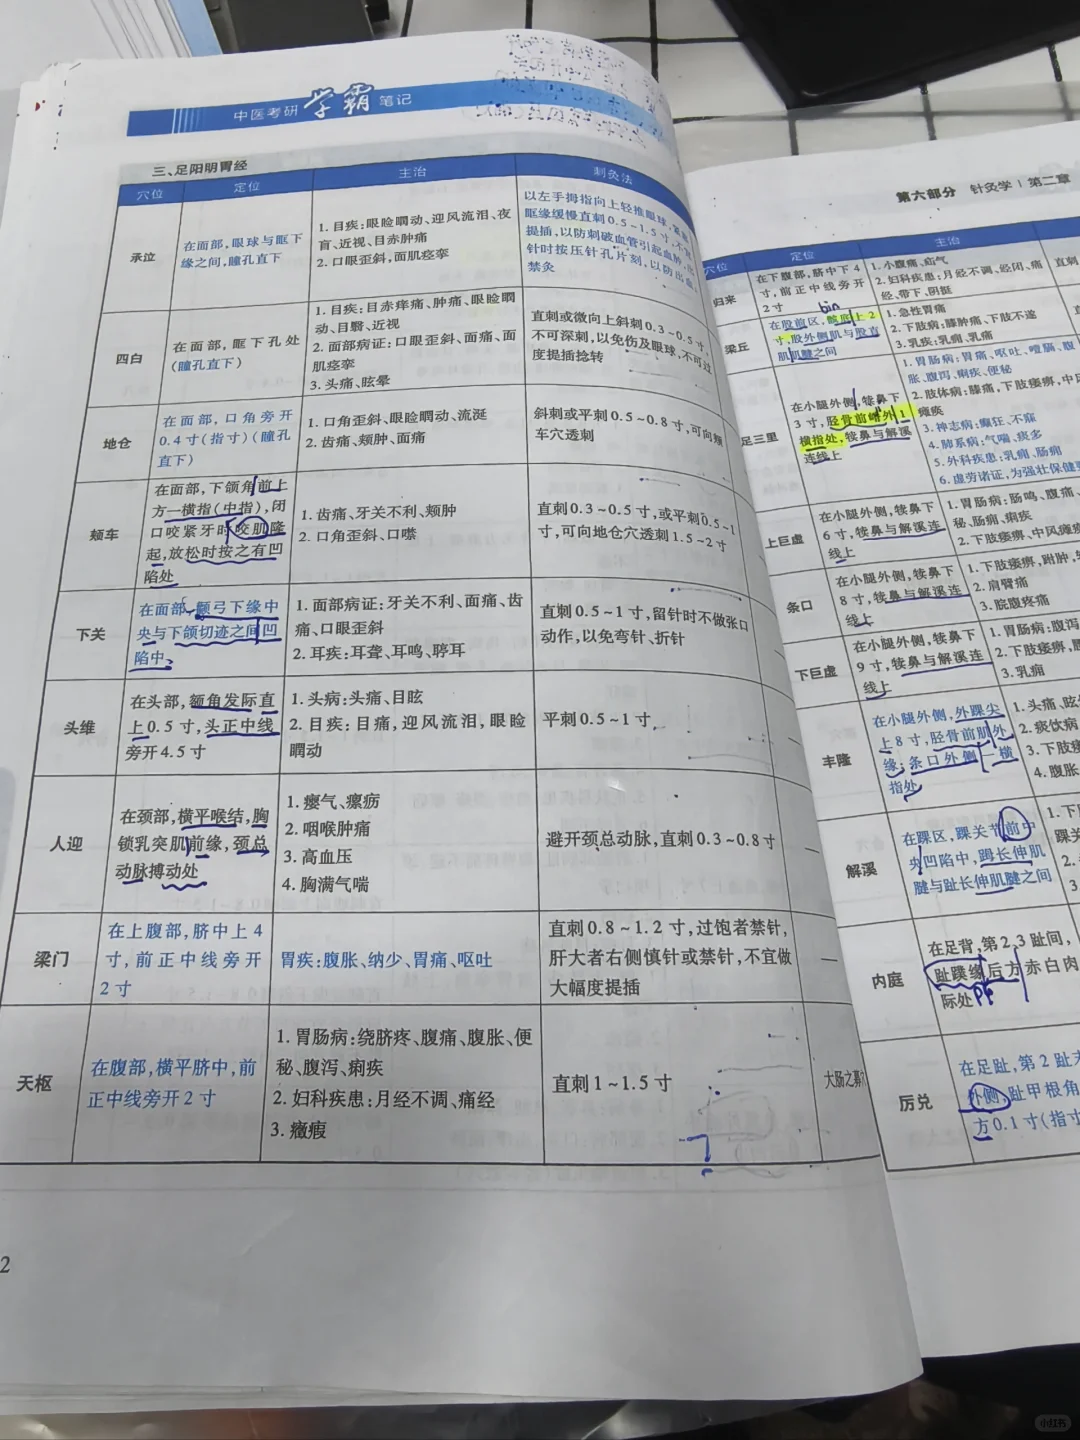 中医考研学霸笔记
三、足阳明胃经
穴位 定位 主治 刺灸法
承泣
在面部,眼球与眶下
缘之间,瞳孔直下
1. 目疾:眼睑瞤动、迎风流泪、夜
盲、近视、目赤肿痛
2. 口眼歪斜,面肌痉挛
以左手拇指向上轻推眼球,紧靠
眶缘缓慢直刺0.5~1.5寸,不宜
提插,以防刺破血管引起血肿,出
针时按压针孔片刻,以防出血,
禁灸
四白
在面部,眶下孔处
(瞳孔直下)
1. 目疾:目赤痒痛、肿痛、眼睑瞤
动、目翳、近视
2. 面部病证:口眼歪斜、面痛、面
肌痉挛
3. 头痛、眩晕
直刺或微向上斜刺0.3~0.5寸,
不可深刺,以免伤及眼球,不可过
度提插捻转
地仓
在面部,口角旁开
0.4寸(指寸)(瞳孔
直下)
1. 口角歪斜、眼睑瞤动、流涎
2. 齿痛、颊肿、面痛
斜刺或平刺0.5~0.8寸,可向颊
车穴透刺
颊车
在面部,下颌角前上
方一横指(中指),闭
口咬紧牙时咬肌隆
起,放松时按之有凹
陷处
1. 齿痛、牙关不利、颊肿
2. 口角歪斜、口噤
直刺0.3~0.5寸,或平刺0.5~1
寸,可向地仓穴透刺1.5~2寸
下关
在面部,颧弓下缘中
央与下颌切迹之间凹
陷中
1. 面部病证:牙关不利、面痛、齿
痛、口眼歪斜
2. 耳疾:耳聋、耳鸣、聤耳
直刺0.5~1寸,留针时不做张口
动作,以免弯针、折针
—
头维
在头部,额角发际直
上0.5寸,头正中线
旁开4.5寸
1. 头病:头痛、目眩
2. 目疾:目痛,迎风流泪,眼睑
瞤动
平刺0.5~1寸
—
人迎
在颈部,横平喉结,胸
锁乳突肌前缘,颈总
动脉搏动处
1. 瘿气、瘰疬
2. 咽喉肿痛
3. 高血压
4. 胸满气喘
避开颈总动脉,直刺0.3~0.8寸
—
梁门
在上腹部,脐中上4
寸,前正中线旁开
2寸
胃疾:腹胀、纳少、胃痛、呕吐
直刺0.8~1.2寸,过饱者禁针,
肝大者右侧慎针或禁针,不宜做
大幅度提插
—
天枢
在腹部,横平脐中,前
正中线旁开2寸
1. 胃肠病:绕脐疼、腹痛、腹胀、便
秘、腹泻、痢疾
2. 妇科疾患:月经不调、痛经
3. 癥瘕
直刺1~1.5寸
大肠之募穴
2
第六部分 针灸学 | 第二章
穴位 定位 主治
归来
在下腹部,脐中下4
寸,前正中线旁开
2寸
1. 小腹痛、疝气
2. 妇科疾患:月经不调、经闭、痛
经、带下、阴挺
直刺
bin
梁丘
在股前区,髌底上2
寸,股外侧肌与股直
肌肌腱之间
1. 急性胃痛
2. 下肢病:膝肿痛、下肢不遂
3. 乳疾:乳痈、乳痛
直刺
足三里
在小腿外侧,犊鼻下
3寸,胫骨前嵴外1
横指处,犊鼻与解溪
连线上
1. 胃肠病:胃痛、呕吐、噎膈、腹
胀、腹泻、痢疾、便秘
2. 肢体病:膝痛,下肢痿痹,中风
瘫痪
3. 神志病:癫狂、不寐
4. 肺系病:气喘、痰多
5. 外科疾患:乳痈、肠痈
6. 虚劳诸证,为强壮保健要
上巨虚
在小腿外侧,犊鼻下
6寸,犊鼻与解溪连
线上
1. 胃肠病:肠鸣、腹痛、
秘、肠痈、痢疾
2. 下肢痿痹、中风瘫痪
条口
在小腿外侧,犊鼻下
8寸,犊鼻与解溪连
线上
1. 下肢痿痹,跗肿,
2. 肩臂痛
3. 脘腹疼痛
下巨虚
在小腿外侧,犊鼻下
9寸,犊鼻与解溪连
线上
1. 胃肠病:腹泻
2. 下肢痿痹,
3. 乳痈
丰隆
在小腿外侧,外踝尖
上8寸,胫骨前肌外
缘;条口外侧一横
指处
1. 头痛、眩
2. 痰饮病
3. 下肢
4. 腹胀
解溪
在踝区,踝关节前中
央凹陷中,踇长伸肌
腱与趾长伸肌腱之间
1. 下
踝关
2.
3.
内庭
在足背,第2、3趾间,
趾蹼缘后方赤白肉
际处
pu
厉兑
在足趾,第2趾
外侧,趾甲根角
方0.1寸(指寸
小红书